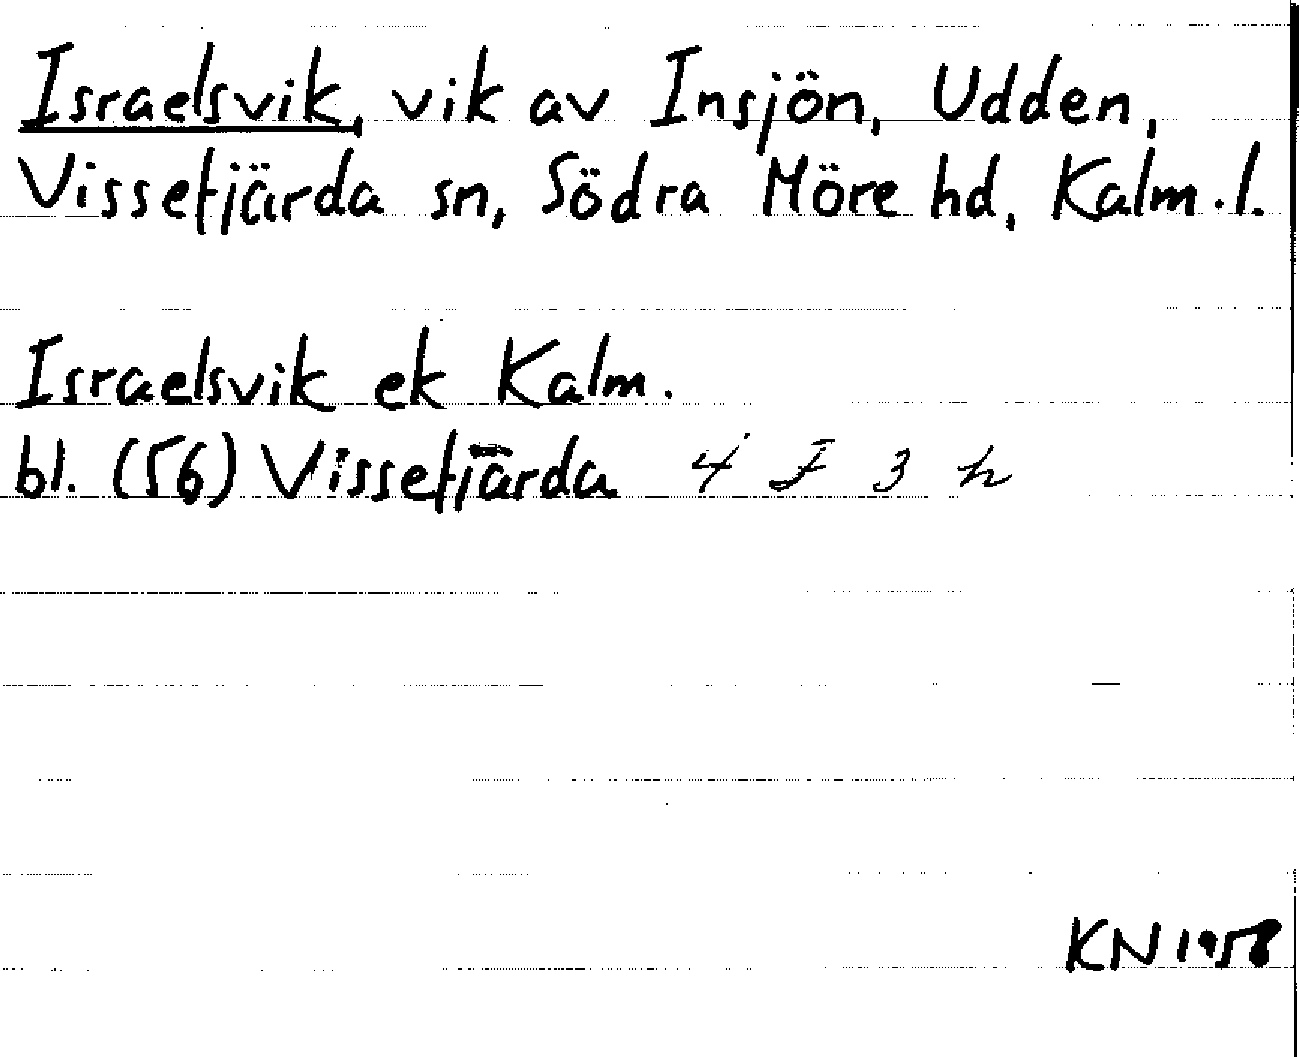 Israelsvik, vik av Insjön, Udden,
Vissefjärda sn, Södra Möre hd, Kalm.l.
Israelsvik ek Kalm.
bl. (56) Vissefjärda 4 F 3 h
KN 1958